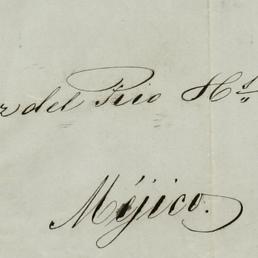 del Rio Hs
Méjico.